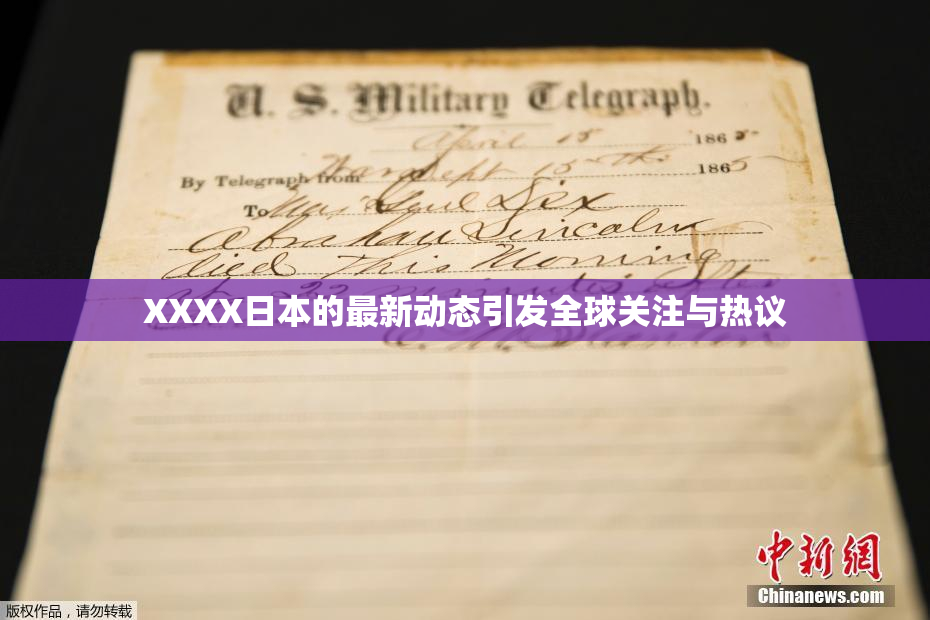 U. S. Military Telegraph.
April 15 1865
By Telegraph from War Dept 15th 1865
To Maj Genl Dix
Abraham Lincoln
died This Morning
at 22 minutes after
XXXX日本的最新动态引发全球关注与热议
E. M. Stanton
中新网
Chinanews.com
版权作品，请勿转载